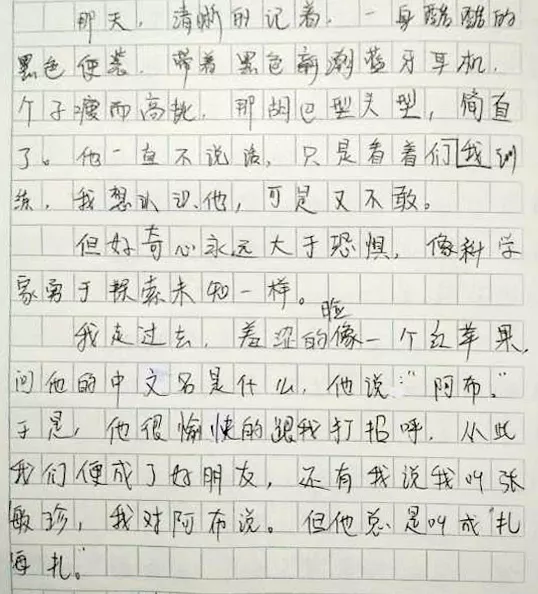 那天，清晰的记着，一身酷酷的
黑色便装，带着黑色新潮蓝牙耳机，
个子瘦而高挑，那胡巴型头型，简直
了。他一直不说话，只是看着们我训
练，我想认识他，可是又不敢。
但好奇心永远大于恐惧，像科学
家勇于探索未知一样。
我走过去，羞涩的脸像一个红苹果，
问他的中文名是什么，他说："阿布。"
于是，他很愉快的跟我打招呼，从此
我们便成了好朋友，还有我说我叫张
敏珍，我对阿布说。但他总是叫成"扎
海扎。"